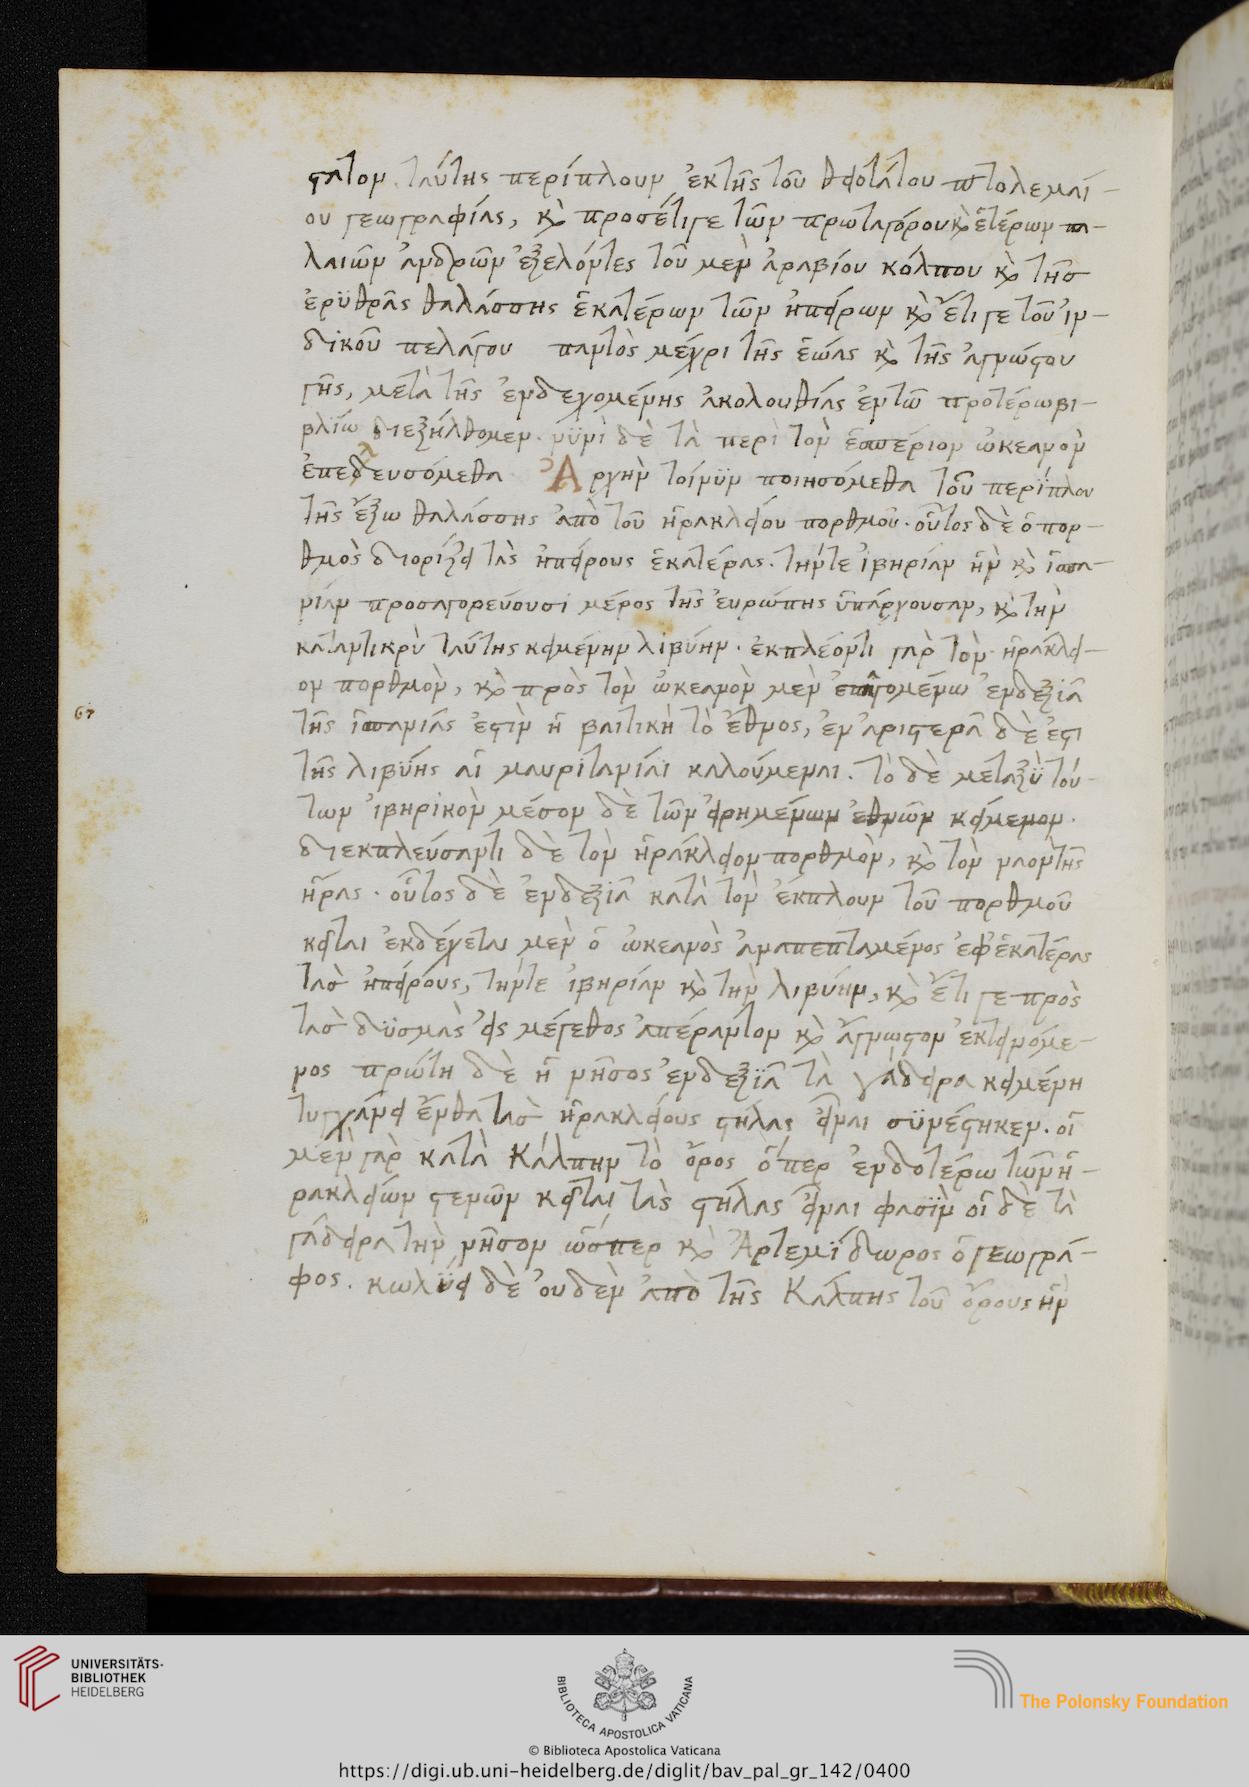 στατον. ταύτης περίπλουν ἐκ τῆς τοῦ θειοτάτου πτολεμαί-
ου γεωγραφίας, κὲ προσέτιγε τῶν πρωταγόρου κὲ ἑτέρων πα-
λαιῶν ἀνδρῶν ἐξελόντες τοῦ μὲν ἀραβίου κόλπου κὲ τῆς
ἐρϋθρᾶς θαλάσσης ἑκατέρων τῶν ἠπείρων κὲ ἔτι γε τοῦ ἰν-
δικοῦ πελάγου παντὸς μέχρι τῆς ἑώας κὲ τῆς ἀγνώστου
γῆς, μετὰ τῆς ἐνδεχομένης ἀκολουθίας ἐν τῶ προτέρω βι-
βλίω διεξήλθομεν. νϋνὶ δὲ τὰ περὶ τὸν ἑσπέριον ὠκεανὸν
ἐπεδευσόμεθα Ἀρχὴν τοίνϋν ποιησόμεθα τοῦ περίπλου
τῆς ἔξω θαλάσσης ἀπὸ τοῦ ἡρακλείου πορθμοῦ. οὗτος δὲ ὁ πορ-
θμὸς διορίζει τὰς ἠπείρους ἑκατέρας. τήντε ἰβηρίαν ἣν κὲ ἱσπα-
νίαν προσαγορεύουσι μέρος τῆς εὐρώπης ὑπάρχουσαν, κὲ τὴν
κατἀντικρὺ ταύτης κειμένην λιβύην. ἐκπλέοντι γὰρ τὸν ἡράκλει-
ον πορθμὸν, κὲ πρὸς τὸν ὠκεανὸν μὲν ἐπειγομένω ἐνδεξιᾶ
τῆς ἱσπανίας ἐστὶν ἡ βαιτικὴ τὸ ἔθνος, ἐν ἀριστερᾶ δὲ ἐστι
67
τῆς λιβϋής αἱ μαυριτανίαι καλούμεναι. τὸ δὲ μεταξὺ τού-
των ἰβηρικὸν μέσον δὲ τῶν εἰρημένων ἐθνῶν κείμενον.
διεκπλεύσαντι δὲ τὸν ἡράκλειον πορθμὸν, κὲ τὸν ναὸν τῆς
ἥρας. οὗτος δὲ ἐνδεξιᾶ κατὰ τὸν ἔκπλουν τοῦ πορθμοῦ
κεῖται ἐκδέχεται μὲν ὁ ὠκεανὸς ἀναπεπταμένος ἐφ' ἑκατέρας
τὰσ ἠπείρους, τήντε ἰβηρίαν κὲ τὴν λιβύην, κὲ ἔτι γε πρὸς
τὰσ δϋσμὰς εἰς μέγεθος ἀπέραντον κὲ ἄγνωστον ἐκτεινόμε-
νος πρώτη δὲ ἡ νῆσος ἐνδεξϊᾶ τὰ γάδειρα κειμένη
τυγχάνει ἔνθα τὰσ ἡρακλείους στήλας εἶναι σϋνέστηκεν. οἱ
μὲν γὰρ κατὰ Κάλπην τὸ ὄρος ὅπερ ἐνδοτέρω τῶν ἡ-
ρακλείων στενῶν κεῖται τὰς στήλας εἶναι φασϊν οἱ δὲ τὰ
γάδειρα τὴν νῆσον ὥσπερ κὲ Ἀρτεμϊδωρος ὁ γεωγρά-
φος. κωλϋει δὲ οὐδὲν ἀπὸ τῆς Κάλπης τοῦ ὄρους ἣν
UNIVERSITÄTS-
BIBLIOTHEK
HEIDELBERG
BIBLIOTECA APOSTOLICA VATICANA
The Polonsky Foundation
© Biblioteca Apostolica Vaticana
https://digi.ub.uni-heidelberg.de/diglit/bav_pal_gr_142/0400